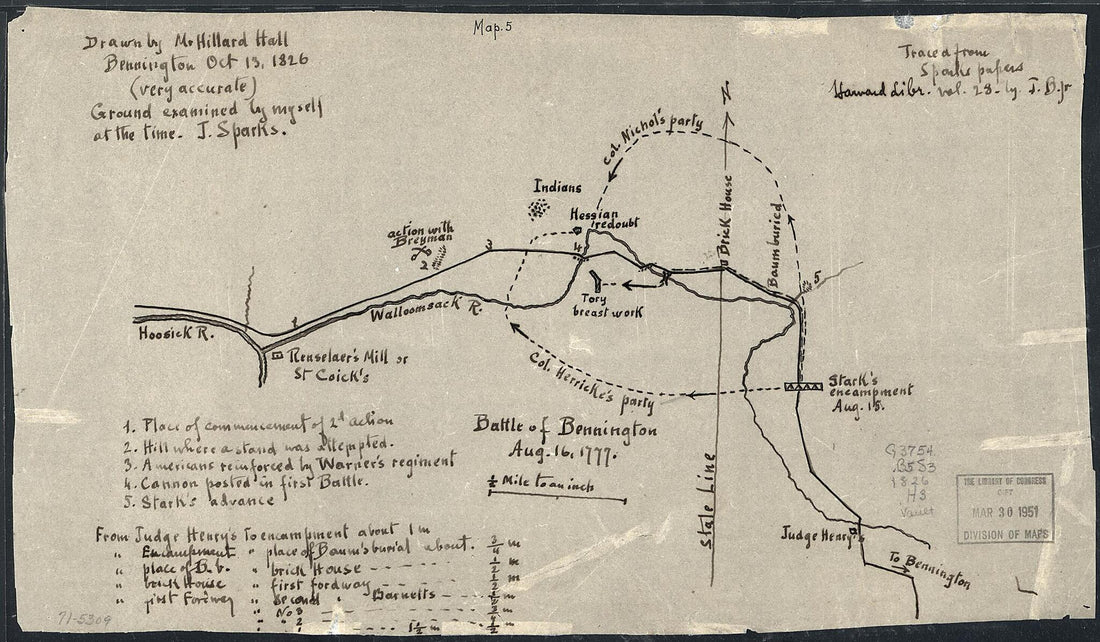 Map. 5
Drawn by Mr Hillard Hall
Bennington Oct 13, 1826
(very accurate)
Ground examined by myself
at the time. J. Sparks.
Traced from
Sparks papers
Harvard Libr. vol. 28. by J. B. Jr
N
Col. Nichol's party
Indians
Hessian
redoubt
action with
Breyman
2
3
4
Brick House
Baum buried
5
Tory
breast work
1
Walloomsack R.
Hoosick R.
Renselaer's Mill or
St Coick's
Col. Herricke's party
Stark's
encampment
Aug. 15.
Battle of Bennington
Aug. 16, 1777.
½ Mile to an inch
State Line
1. Place of commencement of 2d action
2. Hill where a stand was attempted.
3. Americans reinforced by Warner's regiment
4. Cannon posted in first Battle.
5. Stark's advance
From Judge Henry's to encampment about 1 m
" Encampment " place of Baum's burial about. 3/4 m
" place of B. b. " brick House 1/2 m
" brick House " first fordway 1/2 m
" first Fordway " second " Barnetts 1/2 m
" " No 3 3/4 m
" " " 2 1½ m
Judge Henry's
To Bennington
G3754
.B5S3
1826
.H3
Vault
THE LIBRARY OF CONGRESS
GIFT
MAR 30 1951
DIVISION OF MAPS
71-5309